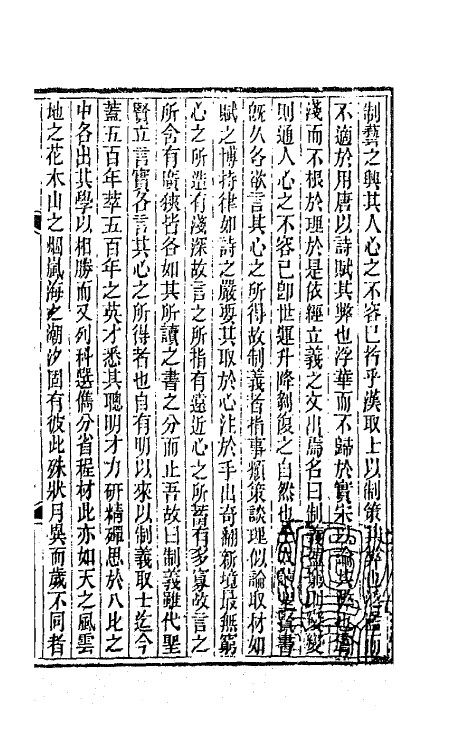 制藝之興其人心之不容已者乎漢取士以制策其弊也
不適於用唐以詩賦其弊也浮華而不歸於實宋以論其弊也
淺而不根於理於是依經立義之文出焉名曰制義
則通人心之不容已卽世運升降剝復之自然也
旣久各欲言其心之所得故制義者指事類策談理似論取材如
賦之博持律如詩之嚴要其取於心注於手出奇翻新境最無窮
心之所造有淺深故言之所指有遠近心之所蓄有多寡故言之
所含有廣狹皆各如其所讀之書之分而止吾故曰制義雖代聖
賢立言實各言其心之所得者也自有明以來以制義取士迄今
蓋五百年萃五百年之英才悉其聰明才力研精殫思於八比之
中各出其學以相勝而又列科選儁分省程材此亦如天之風雲
地之花木山之烟嵐海之潮汐固有彼此殊狀月異而歲不同者